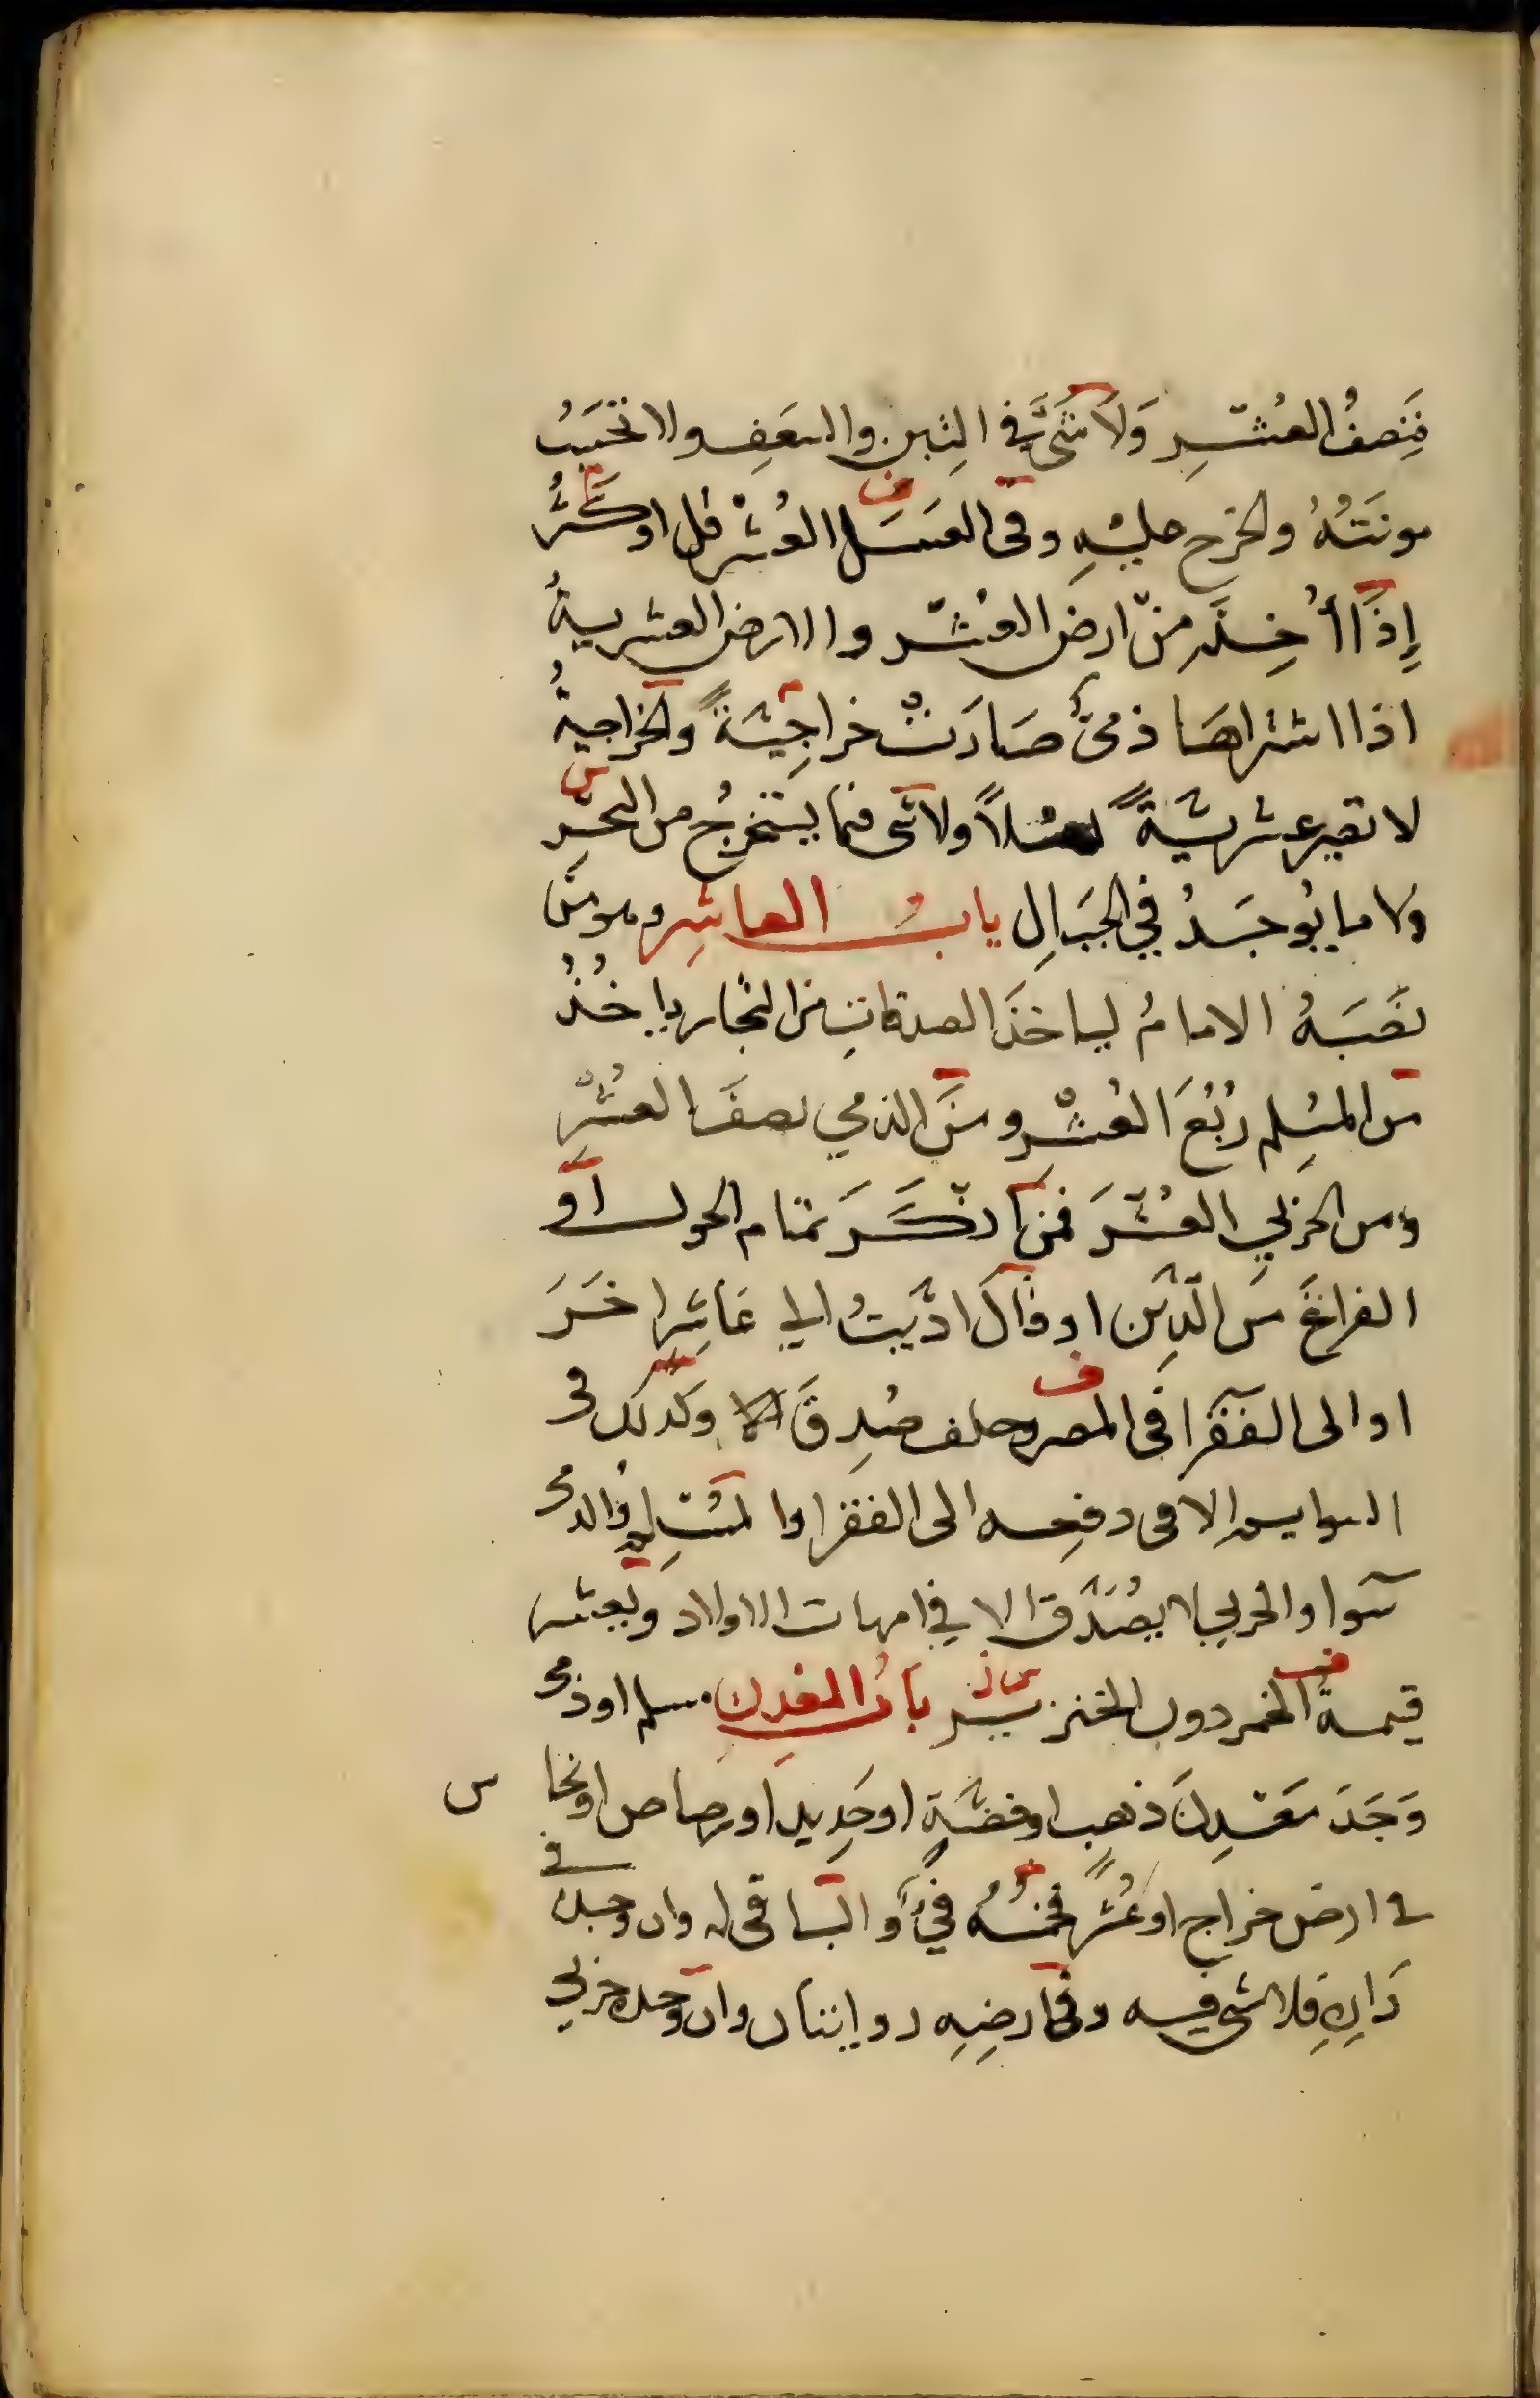 فَنِصفُ العُشْرِ وَلَا شَىَّ في التِبنِ والسَعَفِ ولا تحُسَبُ
مونَتُهُ والخرج عليْهِ وفى العَسَلِ العُشْر قل او كَثُرَ
إِذَا أُخِذَ مِنْ ارضِ العُشْر والارض العشريةُ
اذا اشتراهَا ذمىٌّ صَارَتْ خراجِيَّةً والخراجيةُ
لا تصير عشريَّةً اصْلاً ولا شى فيما يستخرجُ من البحْرِ
ولا ما يُوجَدُ في الجبَالِ بابُ العاشِر وهو من
نصَبَهُ الامامُ لياخذَ الصدقاتِ من التجّار ياخُذُ
من المسُلم رُبُعَ العُشْرِ ومنَ الذمي نصفَ العُشْرِ
ومن الحَرْبي العُشْرَ فمن انكَرَ تمام الحول اوَ
الفراغَ منَ الدَّيْن او قالَ ادَّيتُ الي عَاشِرٍ اخَرَ
او الى الفقرا فى المصر وحلف صُدِقَ وكذلك فى
السوايم الا فى دفعِه الى الفقرا والمسْلِمُ والذمى
سَوا والحربي لا يصُدَّق الا في امهات الاولاد ويعشر
قيمةُ الخمر دون الخنزيْر بابُ المعْدِن مسلم او ذمى
وَجَدَ معْدِنَ ذهبٍ او فضَّةٍ او حَدِيدٍ او رصاص او نحا س
في ارض خراج او عُشْرٍ فخمْسُهُ فيْءٌ والبَاقى له وان وجده في
دَارِهِ فِلا شى فيه وفى ارضِهِ روايتان وان وجده حربي